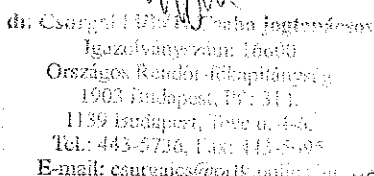 dr. Csurgai
jogtanácsos
Igazolványszám: 16600
Országos Rendőr-főkapitányság
1903 Budapest, Pf.: 314.
1139 Budapest, Teve u. 4-6.
Tel.: 443-5736, Fax: 443-5695
E-mail: